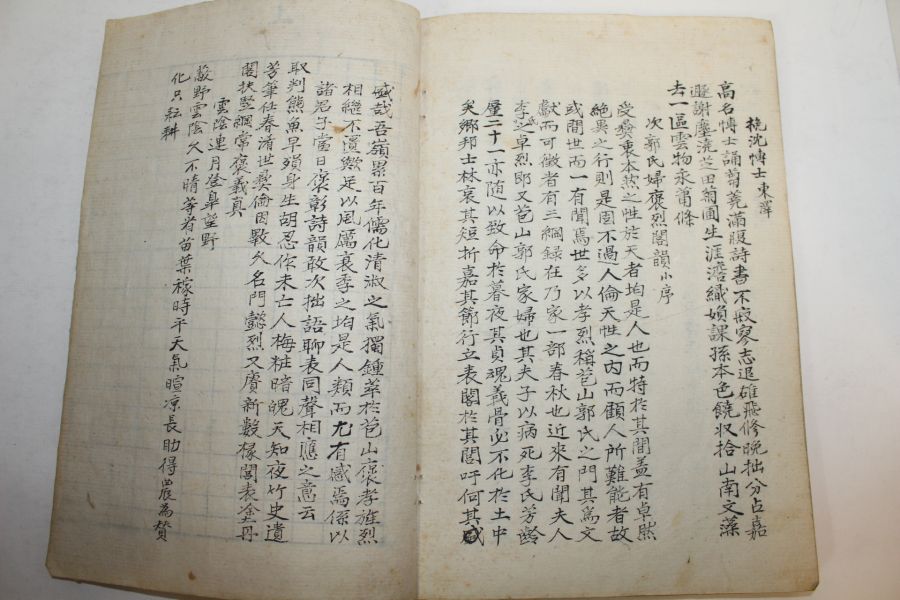 挽沈博士東澤
高名博士誦蒭蕘滿腹詩書不寂寥志退雄飛修晩拙分占嘉
遯謝塵澆芝田菊圃生涯澹織婦課孫本色饒収拾山南文藻
去一區雲物永蕭條
次郭氏婦褒烈閣韻小序
受發衷本然之性於天者均是人也而特於其間盖有卓然
絶異之行則是固不過人倫天性之内而顧人所難能者故
或間世而一有聞焉世多以孝烈稱苞山郭氏之門其爲文
獻而可徵者有三綱録在乃家一部春秋也近來有聞夫人
李氏之卓烈卽又苞山郭氏家婦也其夫子以病死李氏芳齡
廑二十一亦随以致命於暮夜其貞魂義骨必不化於土中
矣鄉邦士林哀其短折嘉其節行立表閣於其閭吁何其盛
盛哉吾嶺累百年儒化清淑之氣獨鍾萃於苞山褒孝旌烈
相繼不遺歟足以風厲衰季之均是人類而尤有感焉係以
諸君子當日褒彰詩韻敢次拙語聊表同聲相應之意云
取判熊魚早殞身生胡忍作未亡人梅粧暗魄天知夜竹史遺
芳筆任春淆世彜倫因斁久名門懿烈又賡新數椽閣表塗丹
雘扶竪綱常褒義眞
雲陰連月登皐望野
蔽野雲陰久不晴等看苗葉稼時平天氣暄凉長助得農爲贊
化只耘耕